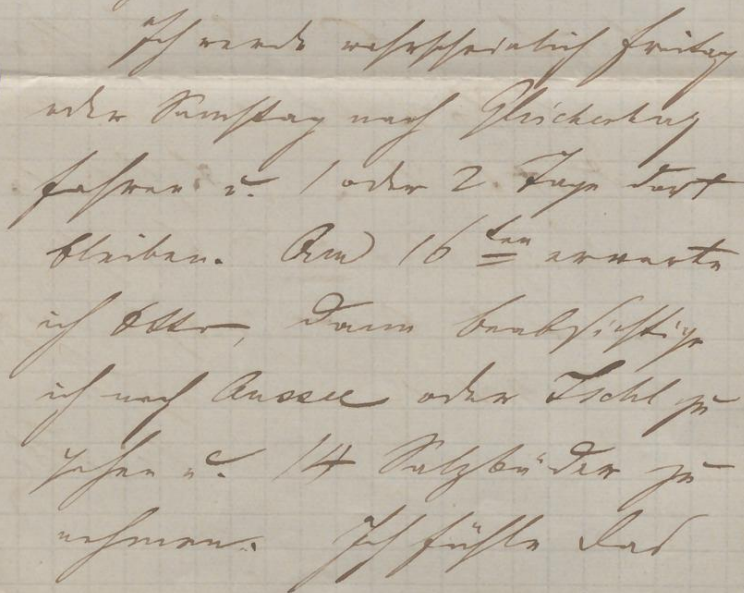 Ich werde wahrscheinlich Freitag
oder Samstag nach Gleichenberg
fahren u. 1 oder 2 Tage dort
bleiben. Am 16ten erwarte
ich Otto, dann beabsichtige
ich nach Aussee oder Ischl zu
gehen u. 14 Salzbäder zu
nehmen. Ich fühle das